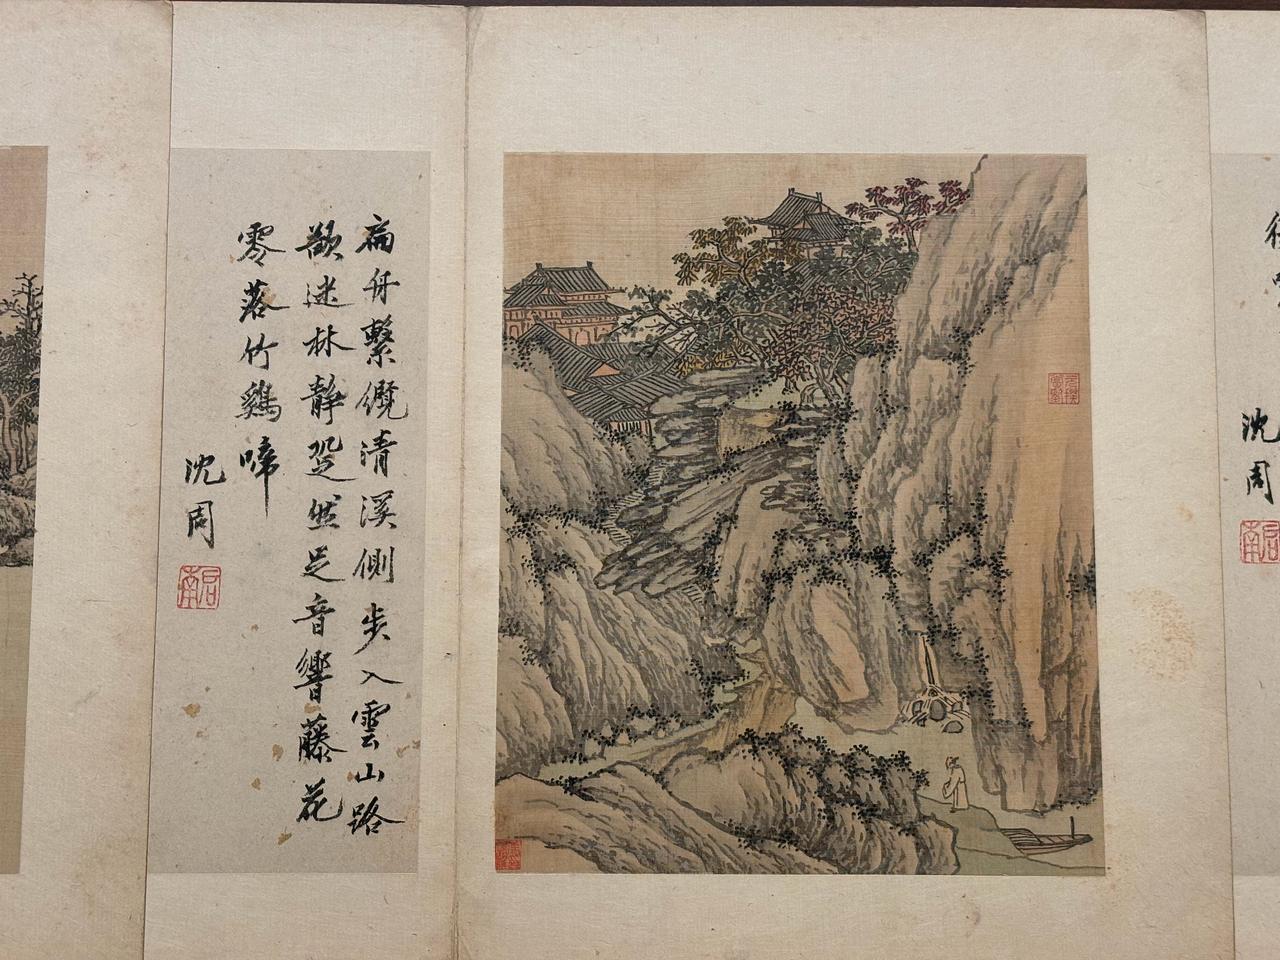 沈周
启南
扁舟繫纜清溪側步入雲山路
欲迷林靜跫然足音響藤花
零落竹鷄啼
沈周
启南